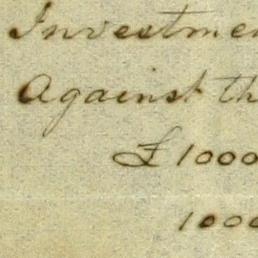 Investme
Against th
£1000
1000